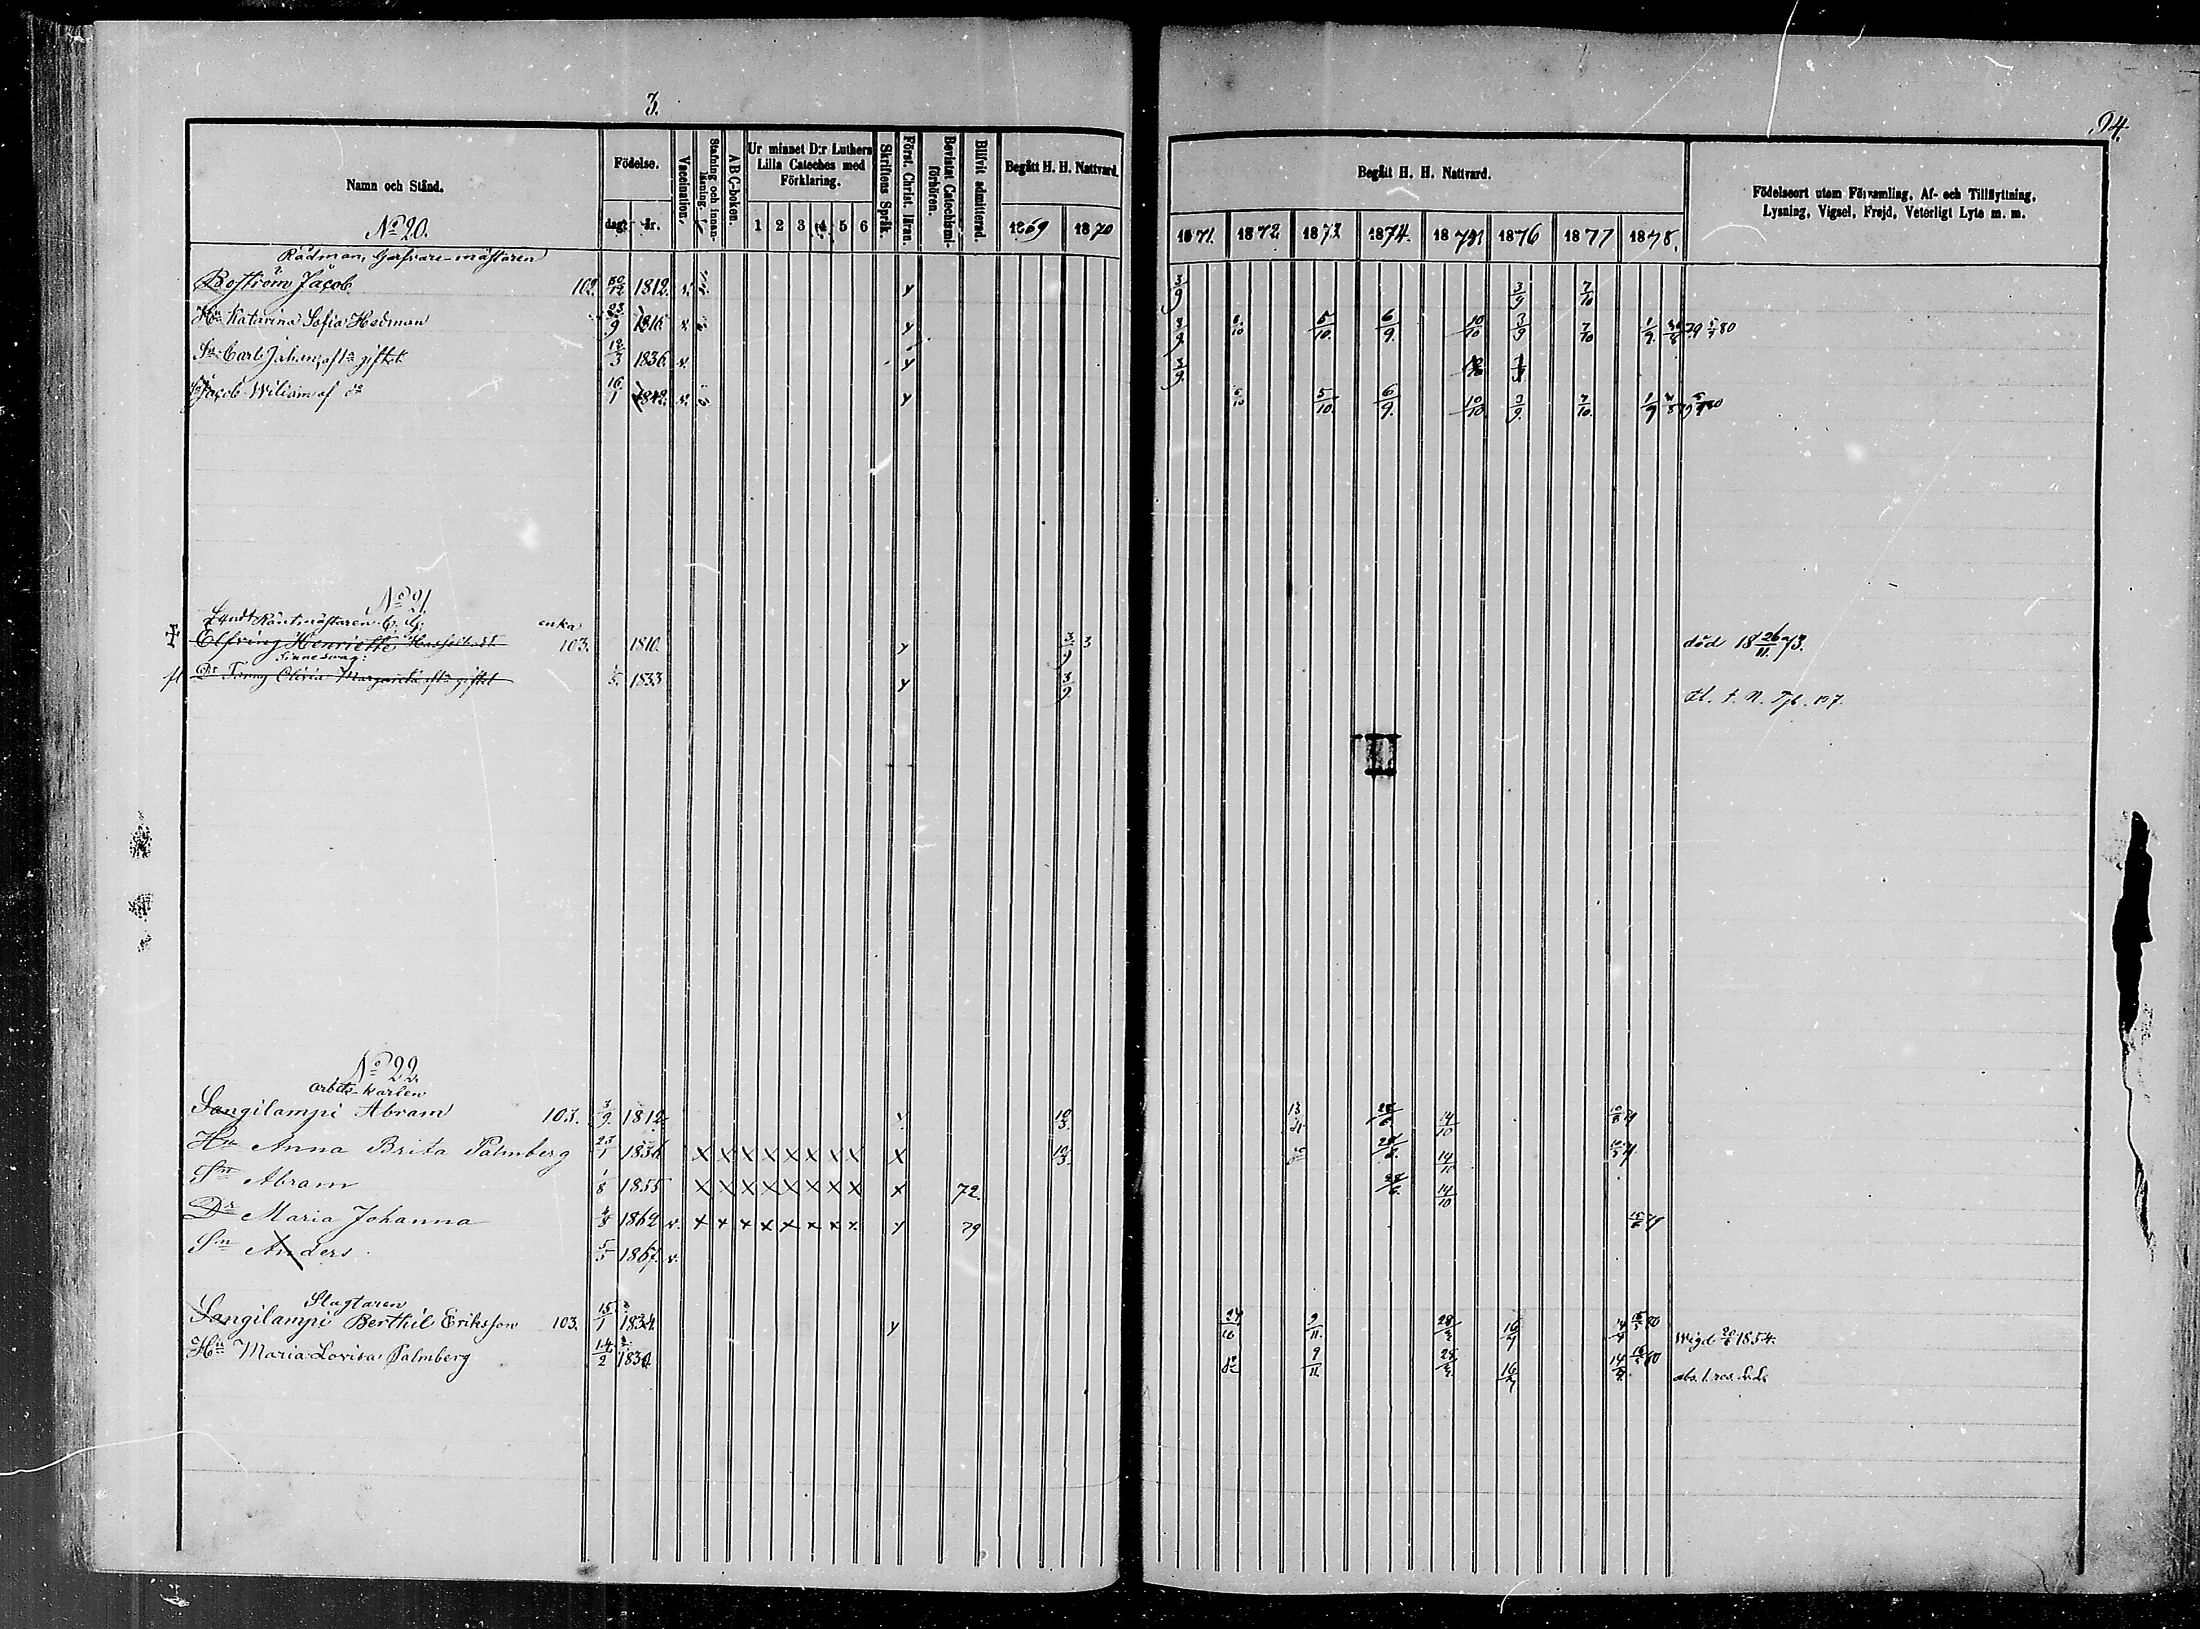 3.
94.
Namn och Stånd.
Födelse.
dag. år.
Vaccination.
Stafning och innanläsning.
ABC-boken.
Ur minnet D:r Luthers Lilla Cateches med Förklaring.
1 2 3 4 5 6
Skriftens Språk.
Först. Christ. läran.
Bevistat Catechismiförhören.
Blifvit admitterad.
Begått H. H. Nattvard.
1869 1870
Begått H. H. Nattvard.
1871. 1872 1873 1874. 1875 1876 1877 1878.
Födelseort utom Församling, Af- och Tillflyttning,
Lysning, Vigsel, Frejd, Veterligt Lyte m. m.
No 20.
Rådman, Garfvare-mästaren
Boström Jacob 102. 30/12 1812. v. y 3/9 3/9 7/10
Hu Katarina Sofia Hedman 23/9 1815 v. y 3/9 6/10 5/10. 6/9. 10/10 3/9 7/10 1/9 79 80
Sn Carl Johan, afta giftet 12/3 1836 v. y 3/9.
Jacob Wiliam af da 16/1 1842. v. y 6/10 5/10. 6/9. 10/10 3/9. 7/10. 1/9
No 21.
Landt Räntmästaren enka
Elfving Henriette 103. 1810. y 3/9 3 död 18 26/11 73.
Sinnesvag:
Dr Fanny Olivia Margareta afta giftet 1/5. 1833 y 3/9 fl. t. N. Tjb. 197.
No 22.
arbets-karlen
Langilampi Abram 103. 3/9. 1812. y 10/3. 28/6. 14/10 79
Hu Anna Brita Palmberg 23/1 1836 x x x x x x x x x 10/3. 28/6. 14/10 79
Sn Abram 1/8 1855 x x x x x x x x x 72. 28/6. 14/10
Dr Maria Johanna 1862 v. x x x x x x x x y 79 15/6 79
Sn Anders. 5/5 1867. v.
Slagtaren
Langilampi Berthil Eriksson 103. 15/1 1834. y 9/11. 28/3 16/7 80 Wigd 1854.
Hu Maria Lovisa Palmberg 14/2 1830 9/11 28/3. 16/7 14/9. 80